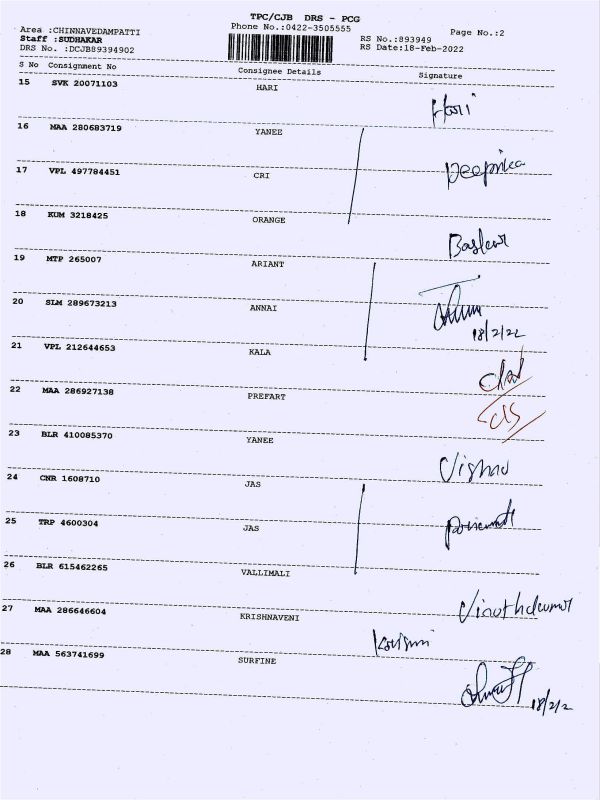 TPC/CJB DRS - PCG
Area :CHINNAVEDAMPATTI Phone No.:0422-3505555 Page No.:2
Staff :SUDHAKAR RS No.:893949
DRS No. :DCJB89394902 RS Date:18-Feb-2022
S No Consignment No Consignee Details Signature
15 SVK 20071103 HARI Hari
16 MAA 280683719 YANEE
17 VPL 497784451 CRI Deepika
18 KUM 3218425 ORANGE Baskar
19 MTP 265007 ARIANT
20 SLM 289673213 ANNAI
18/2/22
21 VPL 212644653 KALA
22 MAA 286927138 PREFART
23 BLR 410085370 YANEE
24 CNR 1608710 JAS
25 TRP 4600304 JAS
26 BLR 615462265 VALLIMALI
27 MAA 286646604 KRISHNAVENI Vinothkumar
28 MAA 563741699 SURFINE
18/2/2